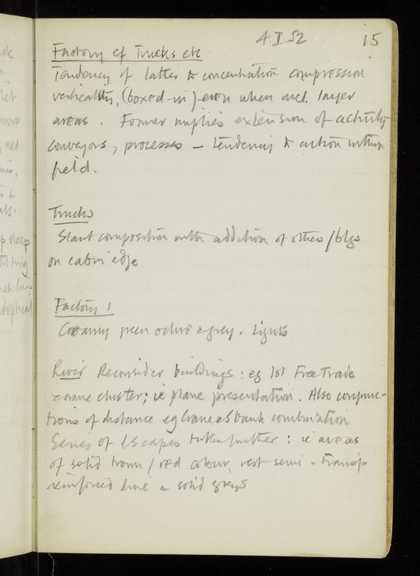 4 II 52
15
Factory cf Trucks etc
Tendency of latter to concentration compression
verticality, (boxed-in) even when incl. larger
areas. Former implies extension of activity
conveyors, processes – tendency to action within
field.
Trucks
Slant composition with addition of others/blgs
on edge
Factory 1
Creamy green ochre & grey. Lights
River Reconsider buildings: eg 101 Free Trade
crane cluster; ie plane presentation. Also conjunc-
tions of distance eg Crane & S bank combination
Series of L'scapes taken further: ie areas
of solid brown/red colour, rest semi-transp
reinforced line & solid greys